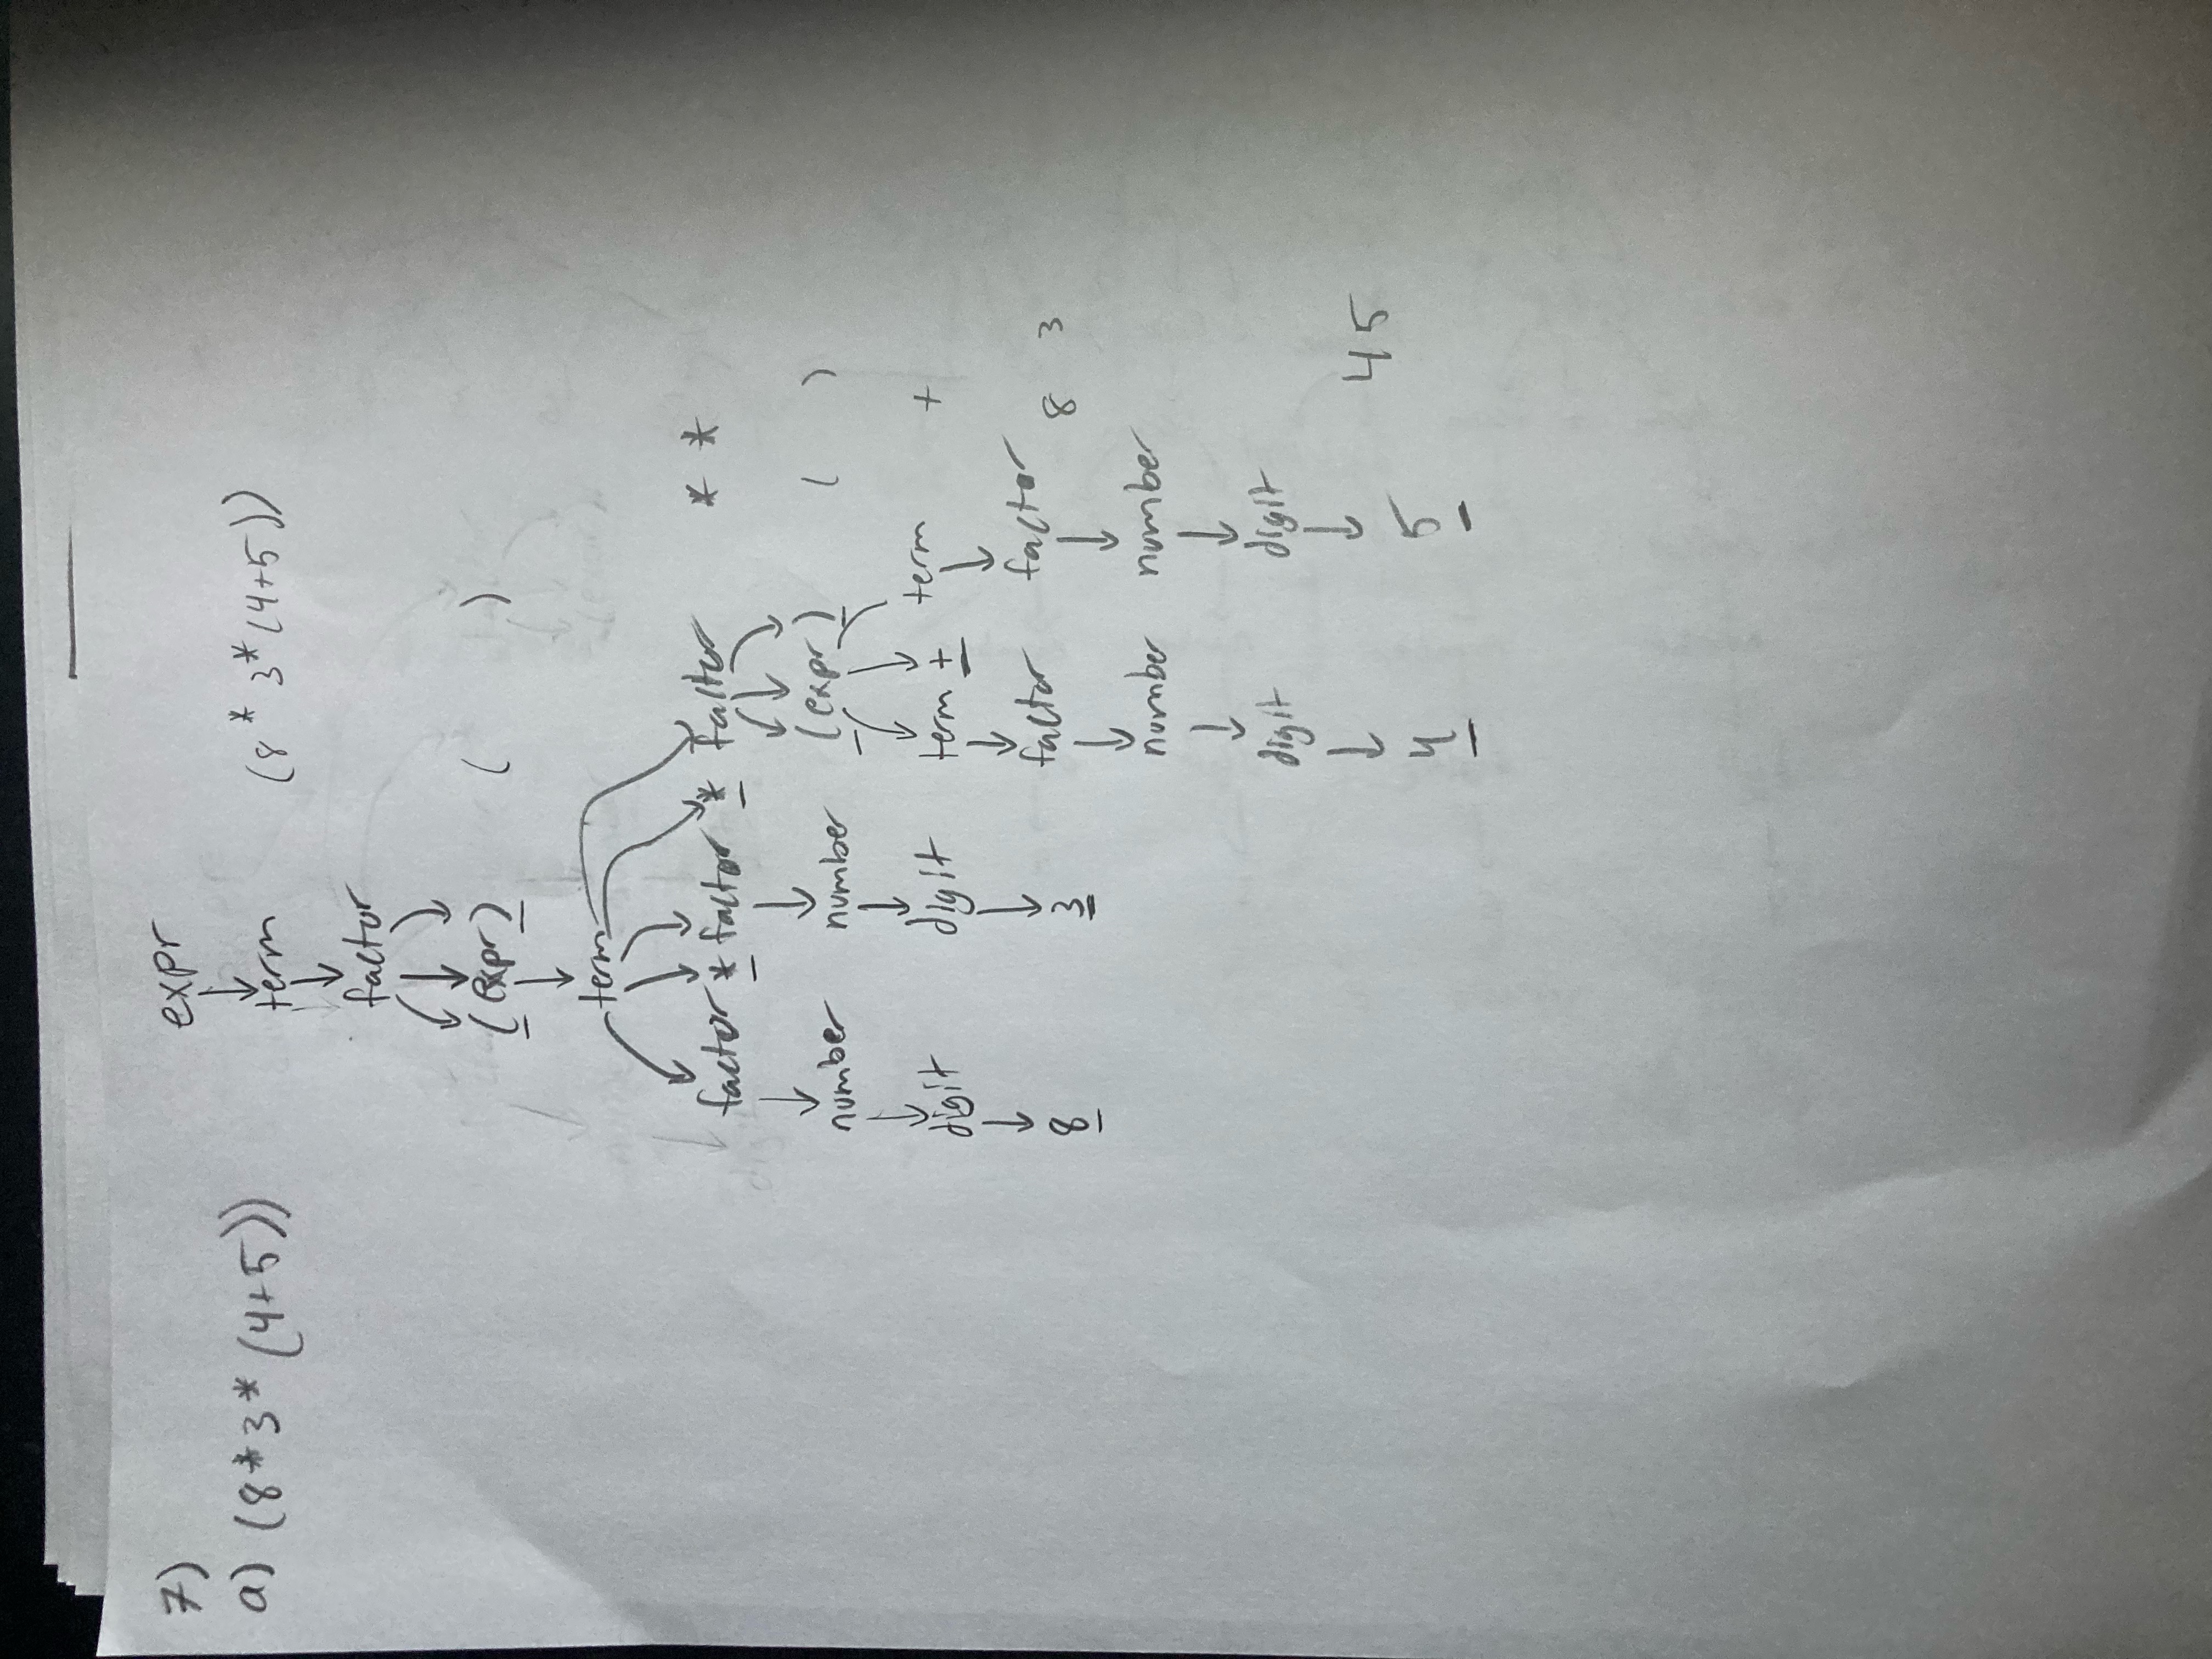 7)
expr
a) (8*3*(4+5))
term
(8*3*(4+5))
factor
(expr)
( )
term
factor * factor * factor
* *
number number (expr)
( )
digit digit term + term
+
8 3 factor factor
8 3
number number
digit digit
4 5
4 5